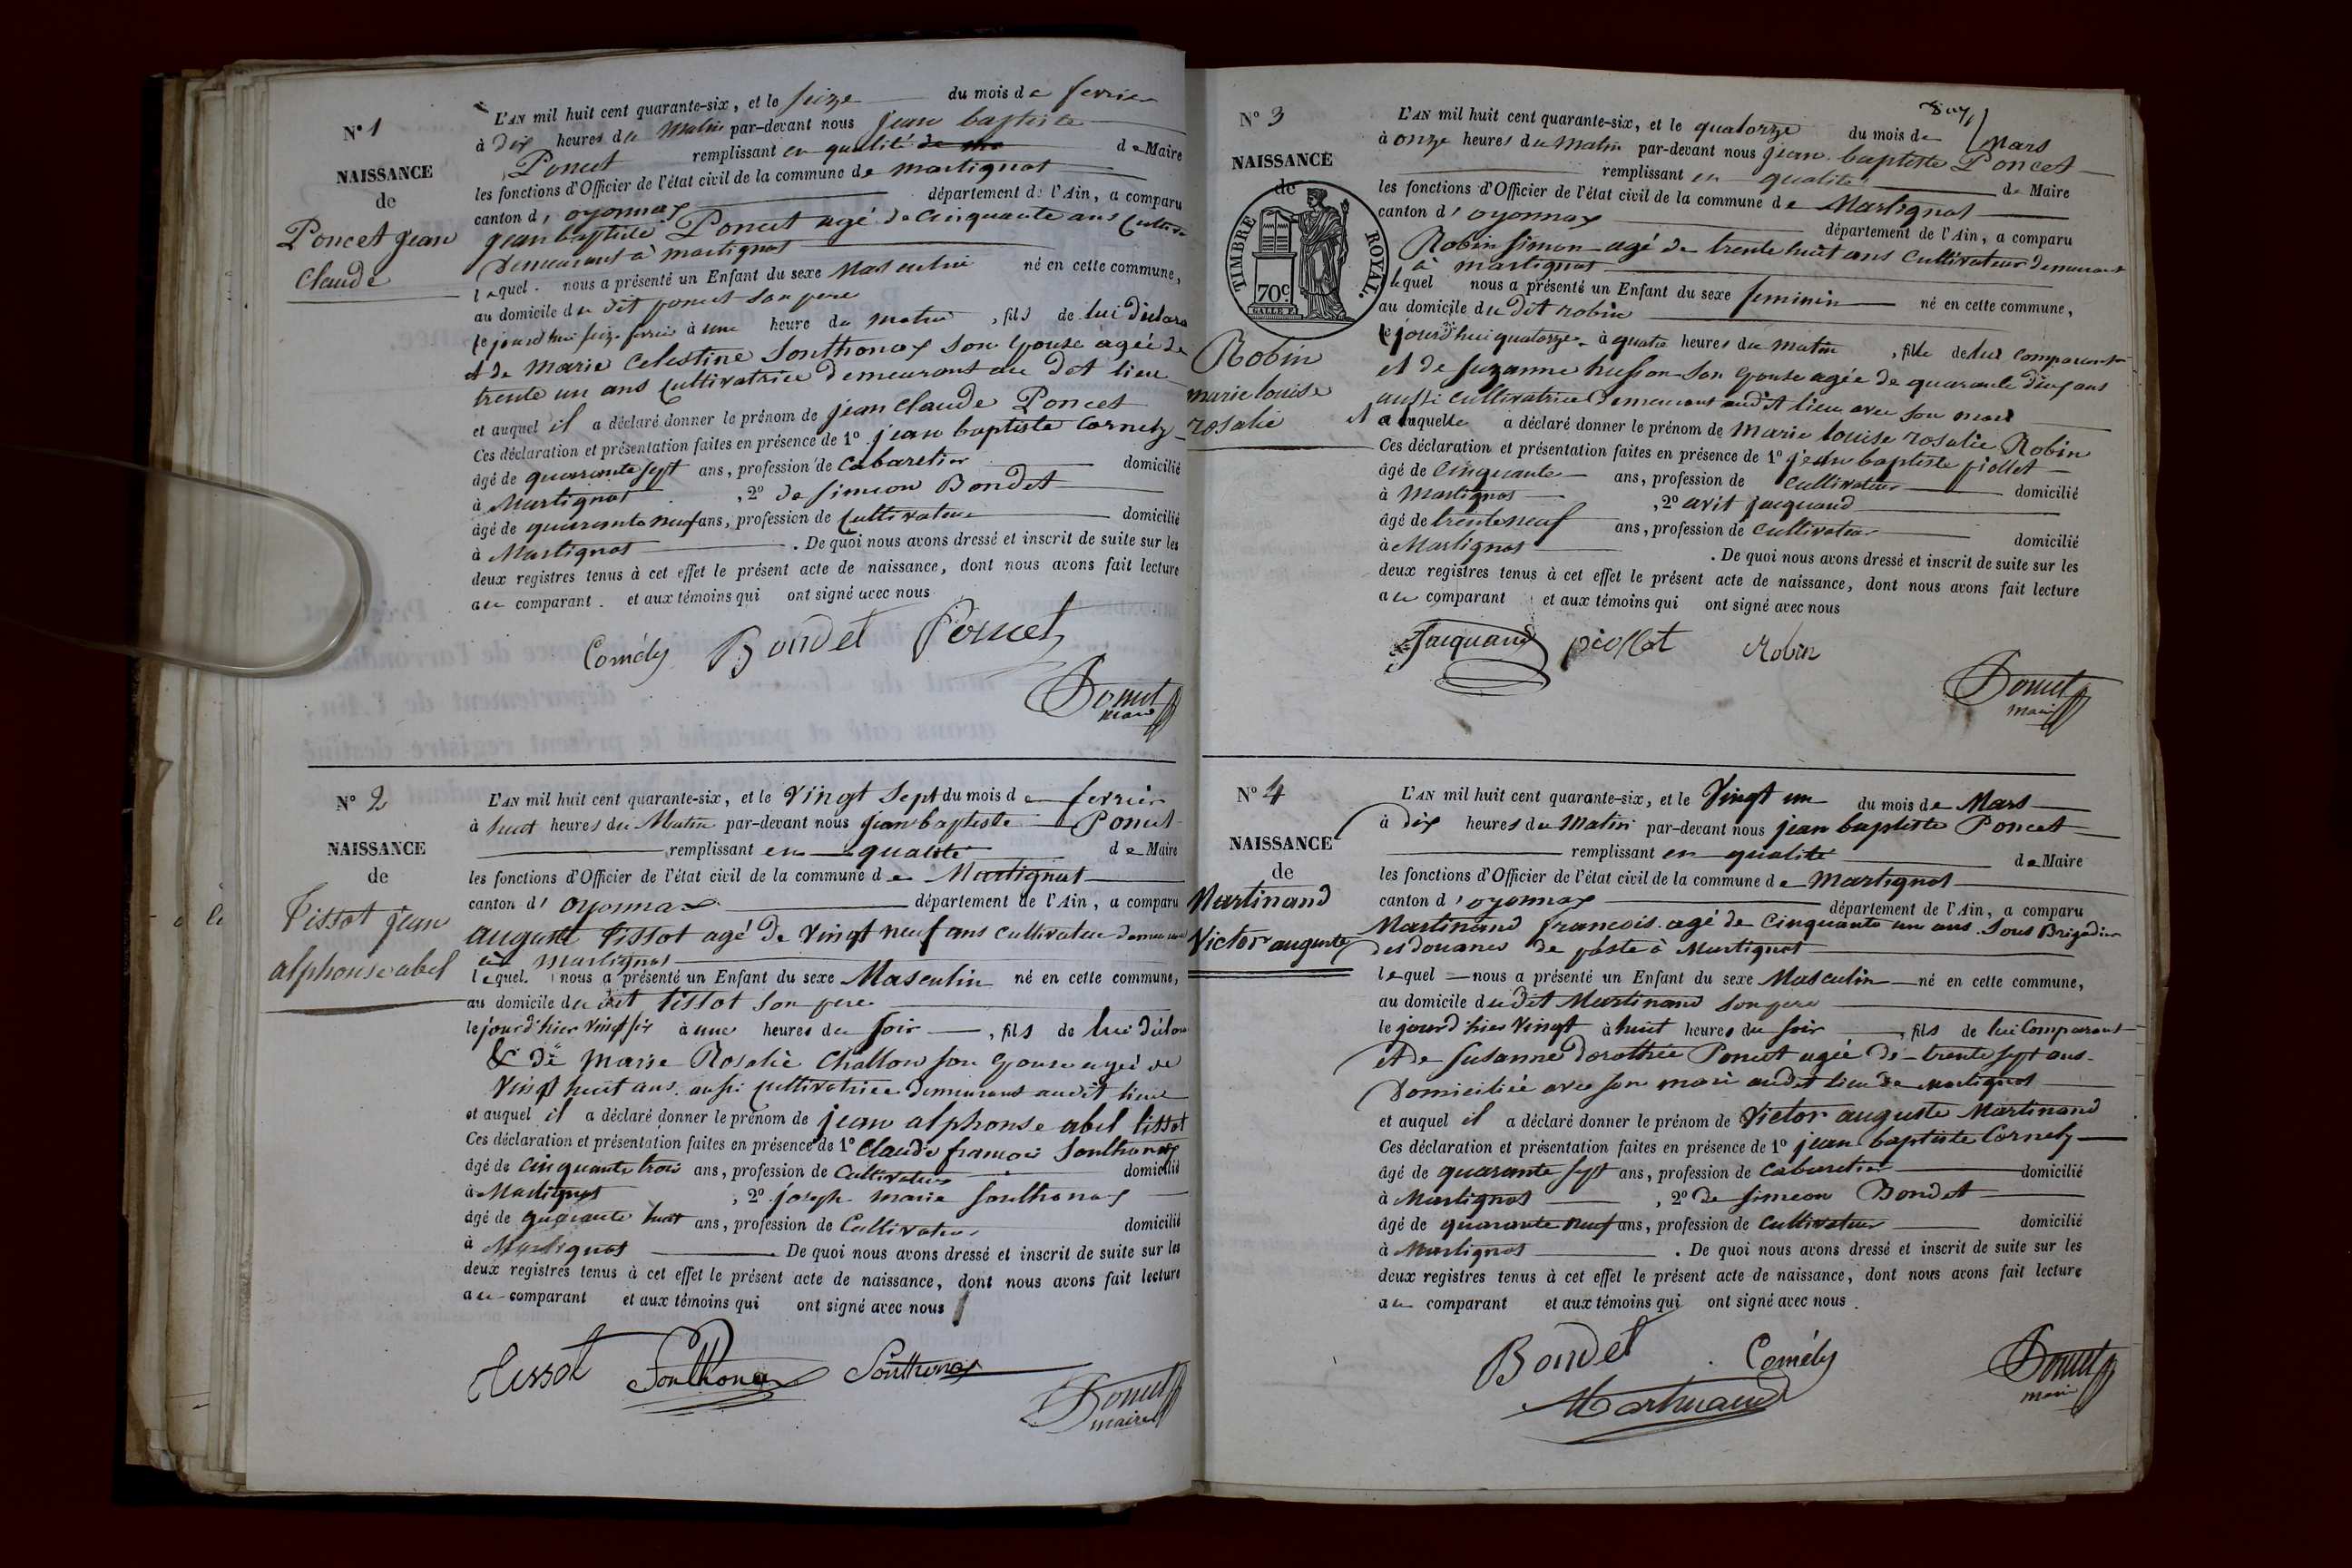 N° 1
NAISSANCE
de
Poncet Jean
Claude
L'AN mil huit cent quarante-six, et le seize du mois de fevrier
à dix heures du Matin par-devant nous jean baptiste
Poncet remplissant en qualité de Maire
les fonctions d'Officier de l'état civil de la commune de martignat
canton d'oyonnax département de l'Ain, a comparu
jean baptiste Poncet agé de cinquante ans
Demeurant à martignat
lequel nous a présenté un Enfant du sexe Masculin né en cette commune,
au domicile du dit poncet son pere
le jourd'hui seize fevrier à une heure du matin, fils de lui
et de Marie Celestine Sonthonax son Epouse agée de
trente un ans Cultivatrice Demeurant au dit lieu
et auquel il a déclaré donner le prénom de jean Claude Poncet
Ces déclaration et présentation faites en présence de 1° jean baptiste Cornely
âgé de quarante sept ans, profession de Cabaretier domicilié
à Martignat, 2° de simeon Bondet
âgé de quarante neuf ans, profession de Cultivateur domicilié
à Martignat. De quoi nous avons dressé et inscrit de suite sur les
deux registres tenus à cet effet le présent acte de naissance, dont nous avons fait lecture
au comparant. et aux témoins qui ont signé avec nous
Cornély Bondet Poncet
Poncet
maire
N° 2
NAISSANCE
de
Tissot jean
alphonse abel
L'AN mil huit cent quarante-six, et le Vingt Sept du mois de fevrier
à huit heures du Matin par-devant nous jean baptiste Poncet
remplissant en qualité de Maire
les fonctions d'Officier de l'état civil de la commune de Martignat
canton d'oyonnax département de l'Ain, a comparu
auguste Tissot agé de Vingt neuf ans cultivateur
à martignat
lequel. nous a présenté un Enfant du sexe Masculin né en cette commune,
au domicile du dit Tissot son pere
le jourd'hier vingt six à une heures du soir, fils de lui
& de Marie Rosalie son Epouse agée de
Vingt huit ans aussi Cultivatrice demeurant audit lieu
et auquel il a déclaré donner le prénom de jean alphonse abel tissot
Ces déclaration et présentation faites en présence de 1° Claude francois Sonthonax
âgé de cinquante trois ans, profession de Cultivateur domicilié
à Martignat, 2° joseph marie Sonthonax
âgé de quarante huit ans, profession de Cultivateur domicilié
à Martignat. De quoi nous avons dressé et inscrit de suite sur les
deux registres tenus à cet effet le présent acte de naissance, dont nous avons fait lecture
au comparant et aux témoins qui ont signé avec nous
Tissot Sonthonax Sonthonax
Poncet
maire
N° 3
NAISSANCE
de
TIMBRE ROYAL.
70c
Robin
marie louise
rosalie
L'AN mil huit cent quarante-six, et le quatorze du mois de Mars
à onze heures du Matin par-devant nous jean baptiste Poncet
remplissant en qualité de Maire
les fonctions d'Officier de l'état civil de la commune de Martignat
canton d'oyonnax département de l'Ain, a comparu
Robin simon agé de trente huit ans Cultivateur demeurant
à martignat
lequel nous a présenté un Enfant du sexe feminin né en cette commune,
au domicile du dit robin
le jourd'hui quatorze à quatre heures du matin, fille de lui Comparant
et de suzanne son Epouse agée de quarante ans
aussi cultivatrice Demeurant audit lieu avec son mari
et a laquelle a déclaré donner le prénom de Marie louise rosalie Robin
Ces déclaration et présentation faites en présence de 1° jean baptiste piollet
âgé de Cinquante ans, profession de Cultivateur domicilié
à Martignat, 2° avit jacquand
âgé de trente neuf ans, profession de cultivateur domicilié
à Martignat. De quoi nous avons dressé et inscrit de suite sur les
deux registres tenus à cet effet le présent acte de naissance, dont nous avons fait lecture
au comparant et aux témoins qui ont signé avec nous
Jacquand piollet Robin
Poncet
maire
N° 4
NAISSANCE
de
Martinand
Victor auguste
L'AN mil huit cent quarante-six, et le Vingt un du mois de Mars
à dix heures du Matin par-devant nous jean baptiste Poncet
remplissant en qualité de Maire
les fonctions d'Officier de l'état civil de la commune de Martignat
canton d'oyonnax département de l'Ain, a comparu
Martinand francois agé de Cinquante un ans. Sous Brigadier
des douanes de poste à Martignat
lequel nous a présenté un Enfant du sexe Masculin né en cette commune,
au domicile du dit Martinand son pere
le jourd'hier Vingt à huit heures du soir, fils de lui Comparant
et de Susanne dorothée Poncet agée de trente sept ans
Domiciliée avec son mari audit lieu de Martignat
et auquel il a déclaré donner le prénom de Victor auguste Martinand
Ces déclaration et présentation faites en présence de 1° jean baptiste Cornely
âgé de quarante sept ans, profession de Cabaretier domicilié
à Martignat, 2° de simeon Bondet
âgé de quarante neuf ans, profession de Cultivateur domicilié
à Martignat. De quoi nous avons dressé et inscrit de suite sur les
deux registres tenus à cet effet le présent acte de naissance, dont nous avons fait lecture
au comparant et aux témoins qui ont signé avec nous.
Bondet Cornély
Martinand
Poncet
maire